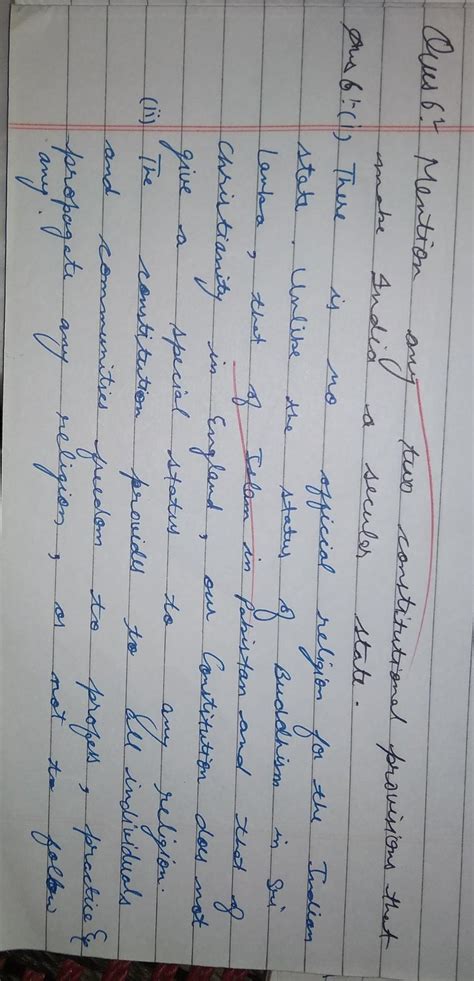 Ques 6:- Mention any two constitutional provisions that
make India a secular state.
Ans 6:- (i) There is no official religion for the Indian
state. Unlike the status of Buddhism in Sri
lanka, that of Islam in Pakistan and that of
Christianity in England, our Constitution does not
give a special status to any religion.
(ii) The constitution provides to all individuals
and communities freedom to profess, practice &
propagate any religion, or not to follow
any.